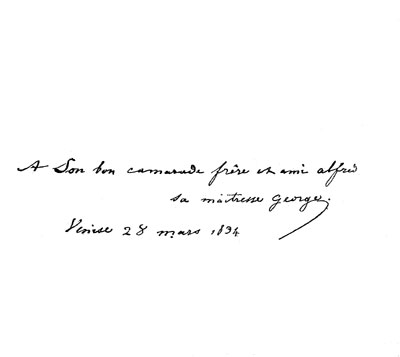 A Son bon camarade frère et ami alfred
sa maitresse George.
Venise 28 mars 1834